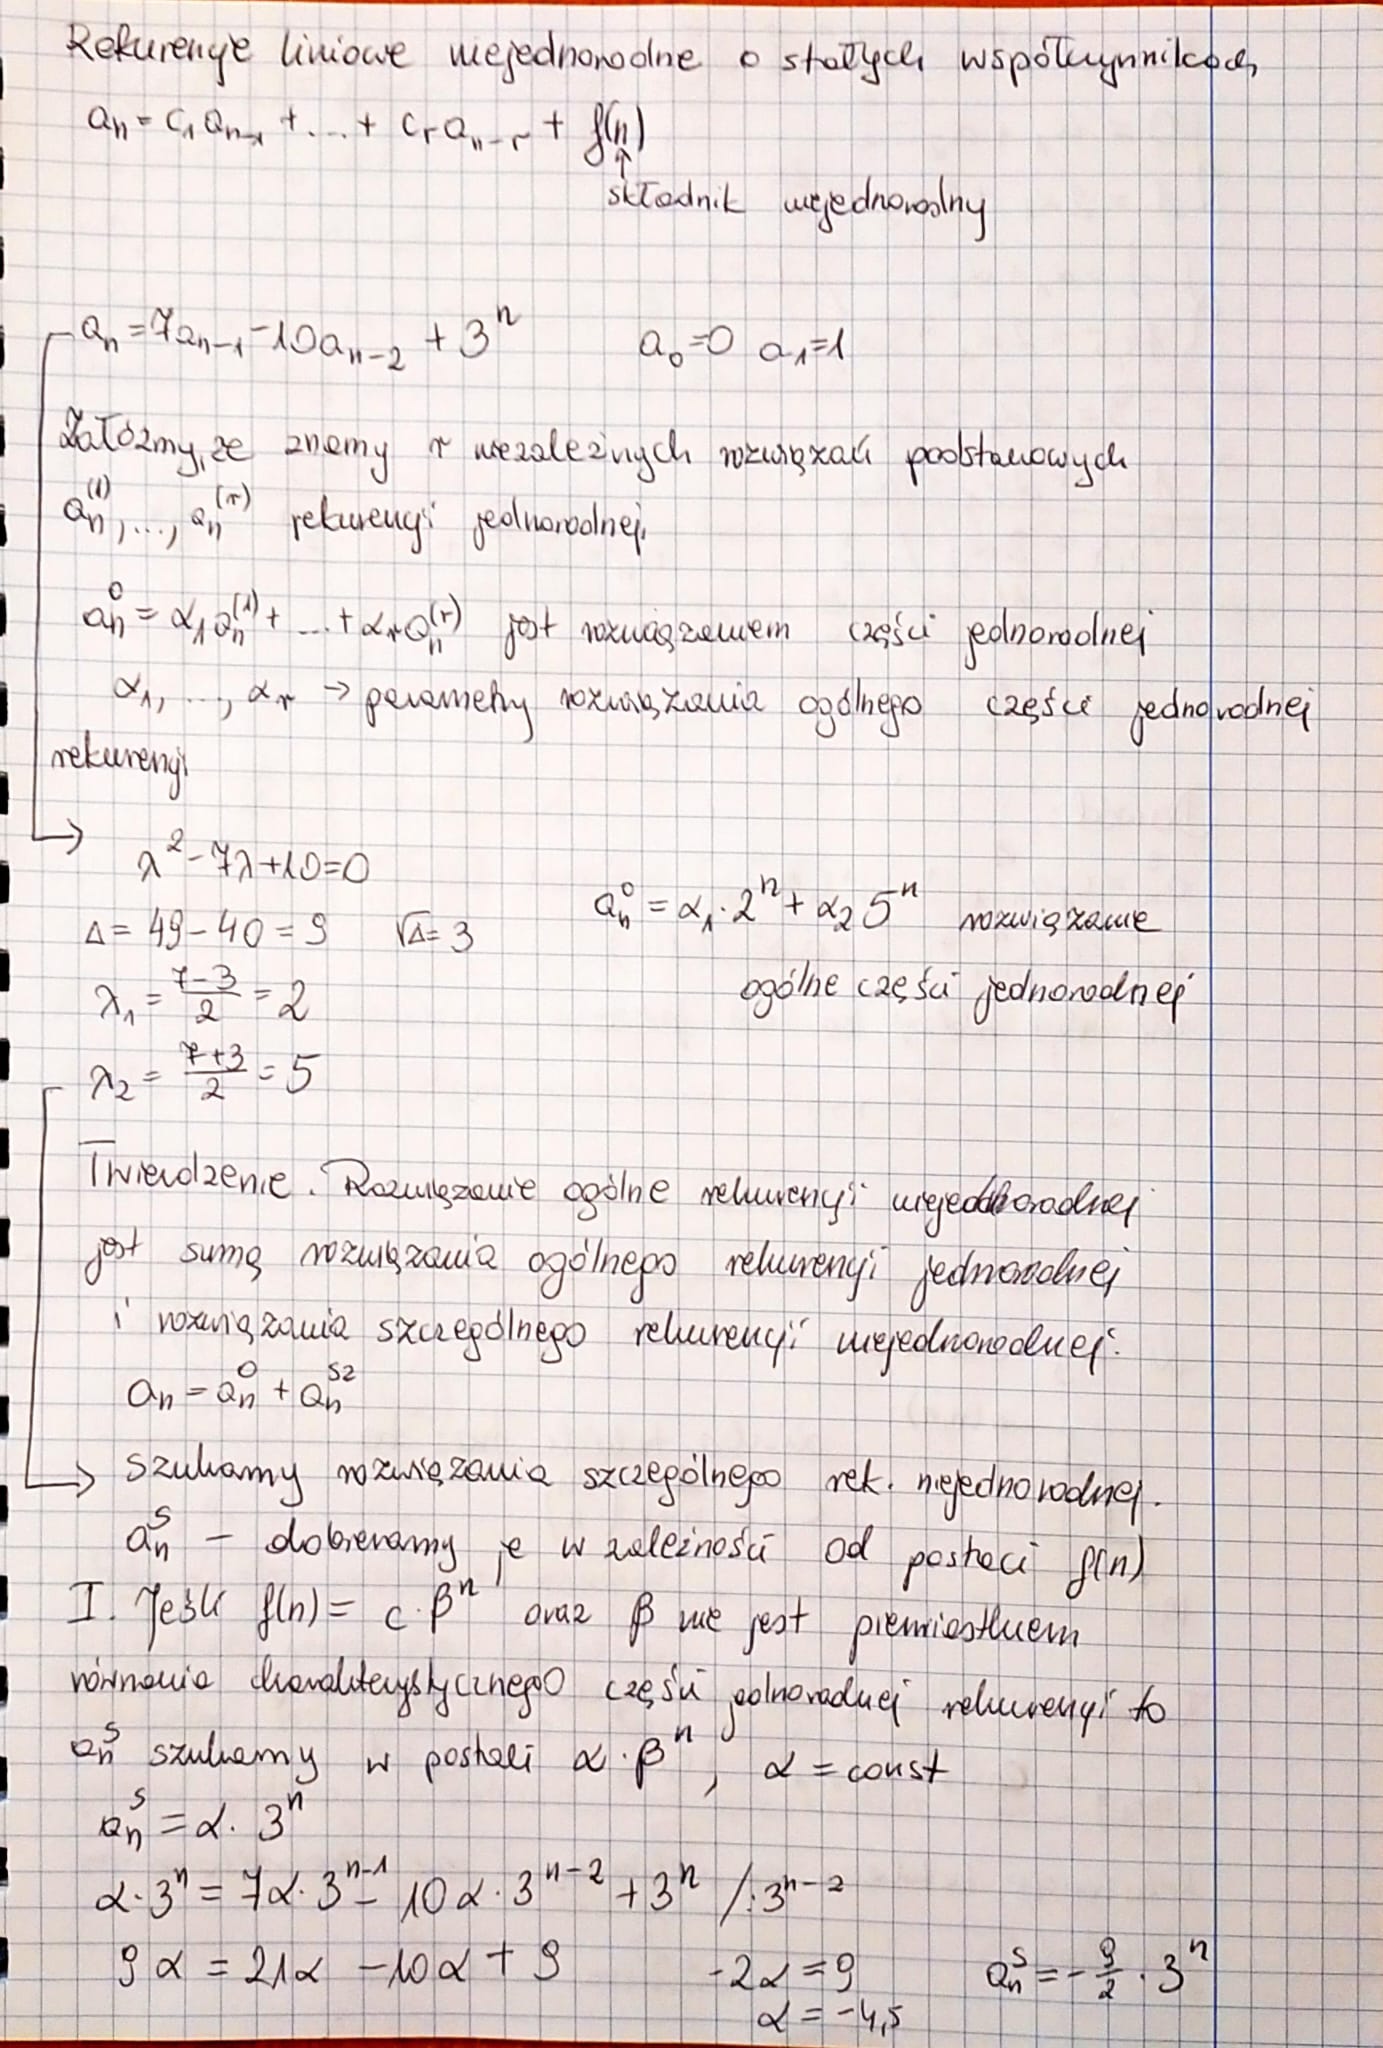 Rekurencje liniowe niejednorodne o stałych współczynnikach
aₙ = c₁aₙ₋₁ + ... + cᵣaₙ₋ᵣ + f(n)
↑
składnik niejednorodny
aₙ = 7aₙ₋₁ - 10aₙ₋₂ + 3ⁿ a₀=0 a₁=1
Załóżmy, że znamy r niezależnych rozwiązań podstawowych
aₙ⁽¹⁾, ..., aₙ⁽ʳ⁾ rekurencji jednorodnej.
aₙ⁰ = α₁aₙ⁽¹⁾ + ... + αᵣaₙ⁽ʳ⁾ jest rozwiązaniem części jednorodnej
α₁, ..., αᵣ → parametry rozwiązania ogólnego części jednorodnej
rekurencji
λ² - 7λ + 10 = 0
aₙ⁰ = α₁·2ⁿ + α₂5ⁿ rozwiązanie
Δ = 49 - 40 = 9 √Δ = 3
ogólne części jednorodnej
λ₁ = (7-3)/2 = 2
λ₂ = (7+3)/2 = 5
Twierdzenie. Rozwiązanie ogólne rekurencji niejednorodnej
jest sumą rozwiązania ogólnego rekurencji jednorodnej
i rozwiązania szczególnego rekurencji niejednorodnej.
aₙ = aₙ⁰ + aₙˢᶻ
Szukamy rozwiązania szczególnego rek. niejednorodnej.
aₙˢ – dobieramy je w zależności od postaci f(n)
I. Jeśli f(n) = c·βⁿ oraz β nie jest pierwiastkiem
równania charakterystycznego części jednorodnej rekurencji to
aₙˢ szukamy w postaci α·βⁿ, α = const
aₙˢ = α·3ⁿ
α·3ⁿ = 7α·3ⁿ⁻¹ - 10α·3ⁿ⁻² + 3ⁿ /:3ⁿ⁻²
9α = 21α - 10α + 9 -2α = 9 aₙˢ = -9/2·3ⁿ
α = -4,5